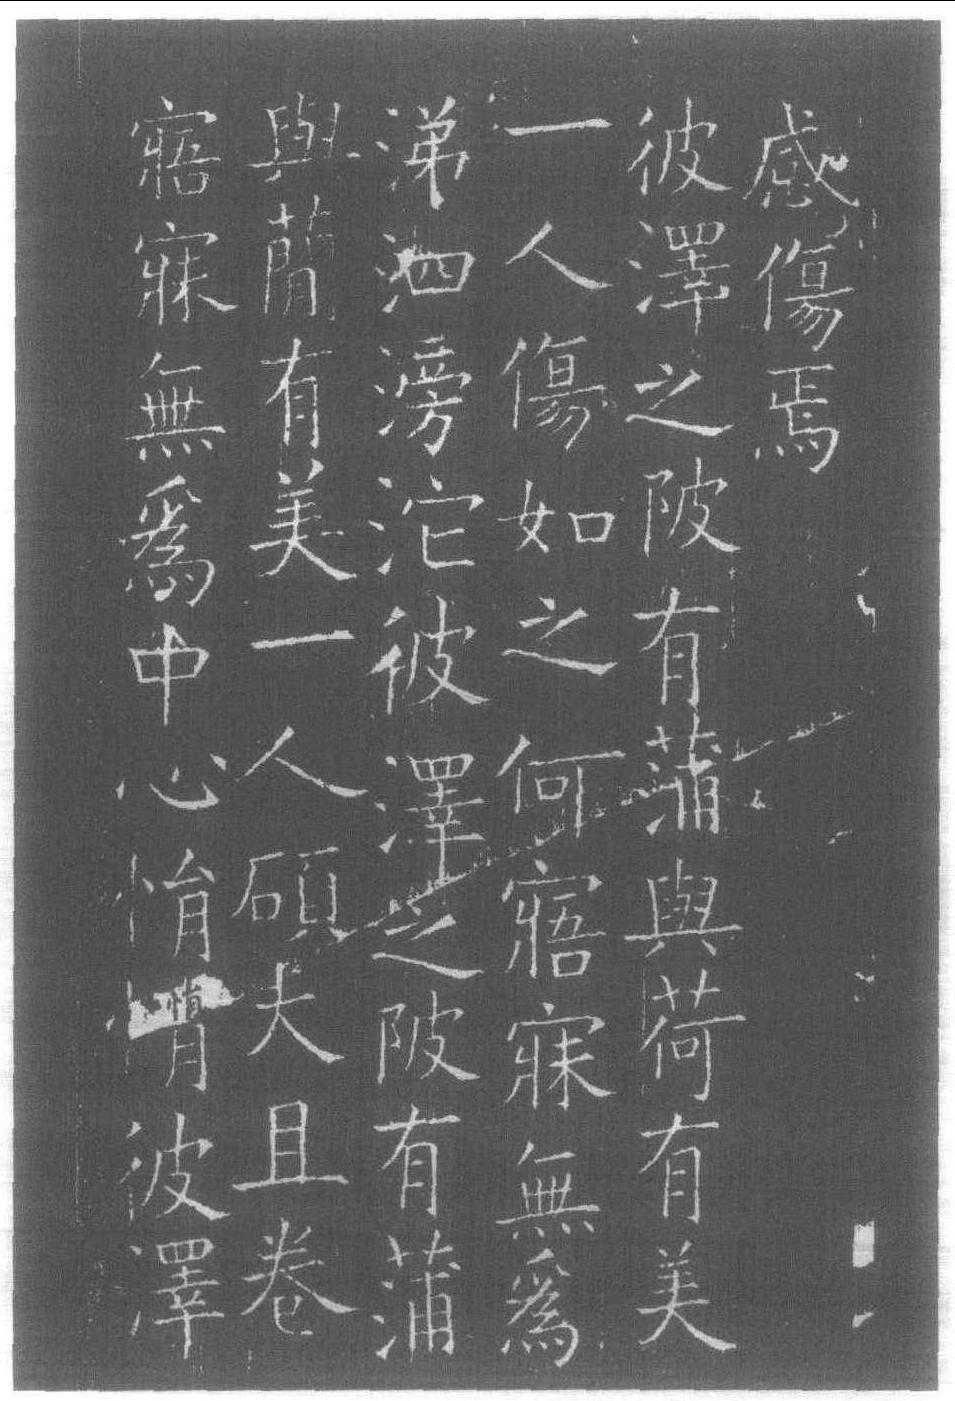 感傷焉
彼澤之陂有蒲與荷有美
一人傷如之何寤寐無爲
涕泗滂沱彼澤之陂有蒲
與蕑有美一人碩大且卷
寤寐無爲中心悁悁彼澤